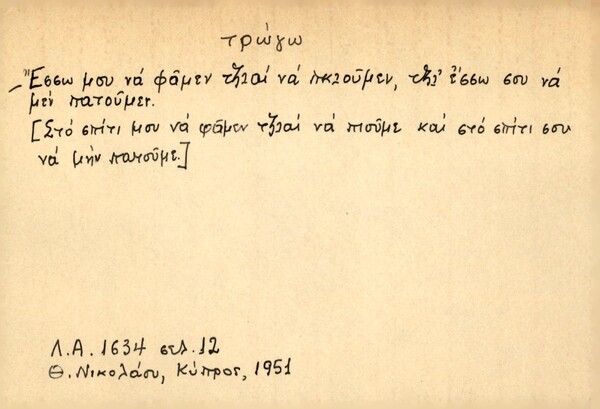 τρώγω
– Ἔσσω μου νά φᾶμεν τζ̌αί νά πκιοῦμεν, τζ̌' ἔσσω σου νά
μέν πατοῦμεν.
[Στό σπίτι μου νά φᾶμεν τζ̌αί νά πιοῦμε καί στό σπίτι σου
νά μήν πατοῦμε.]
Λ.Α. 1634 σελ. 12
Θ. Νικολάου, Κύπρος, 1951